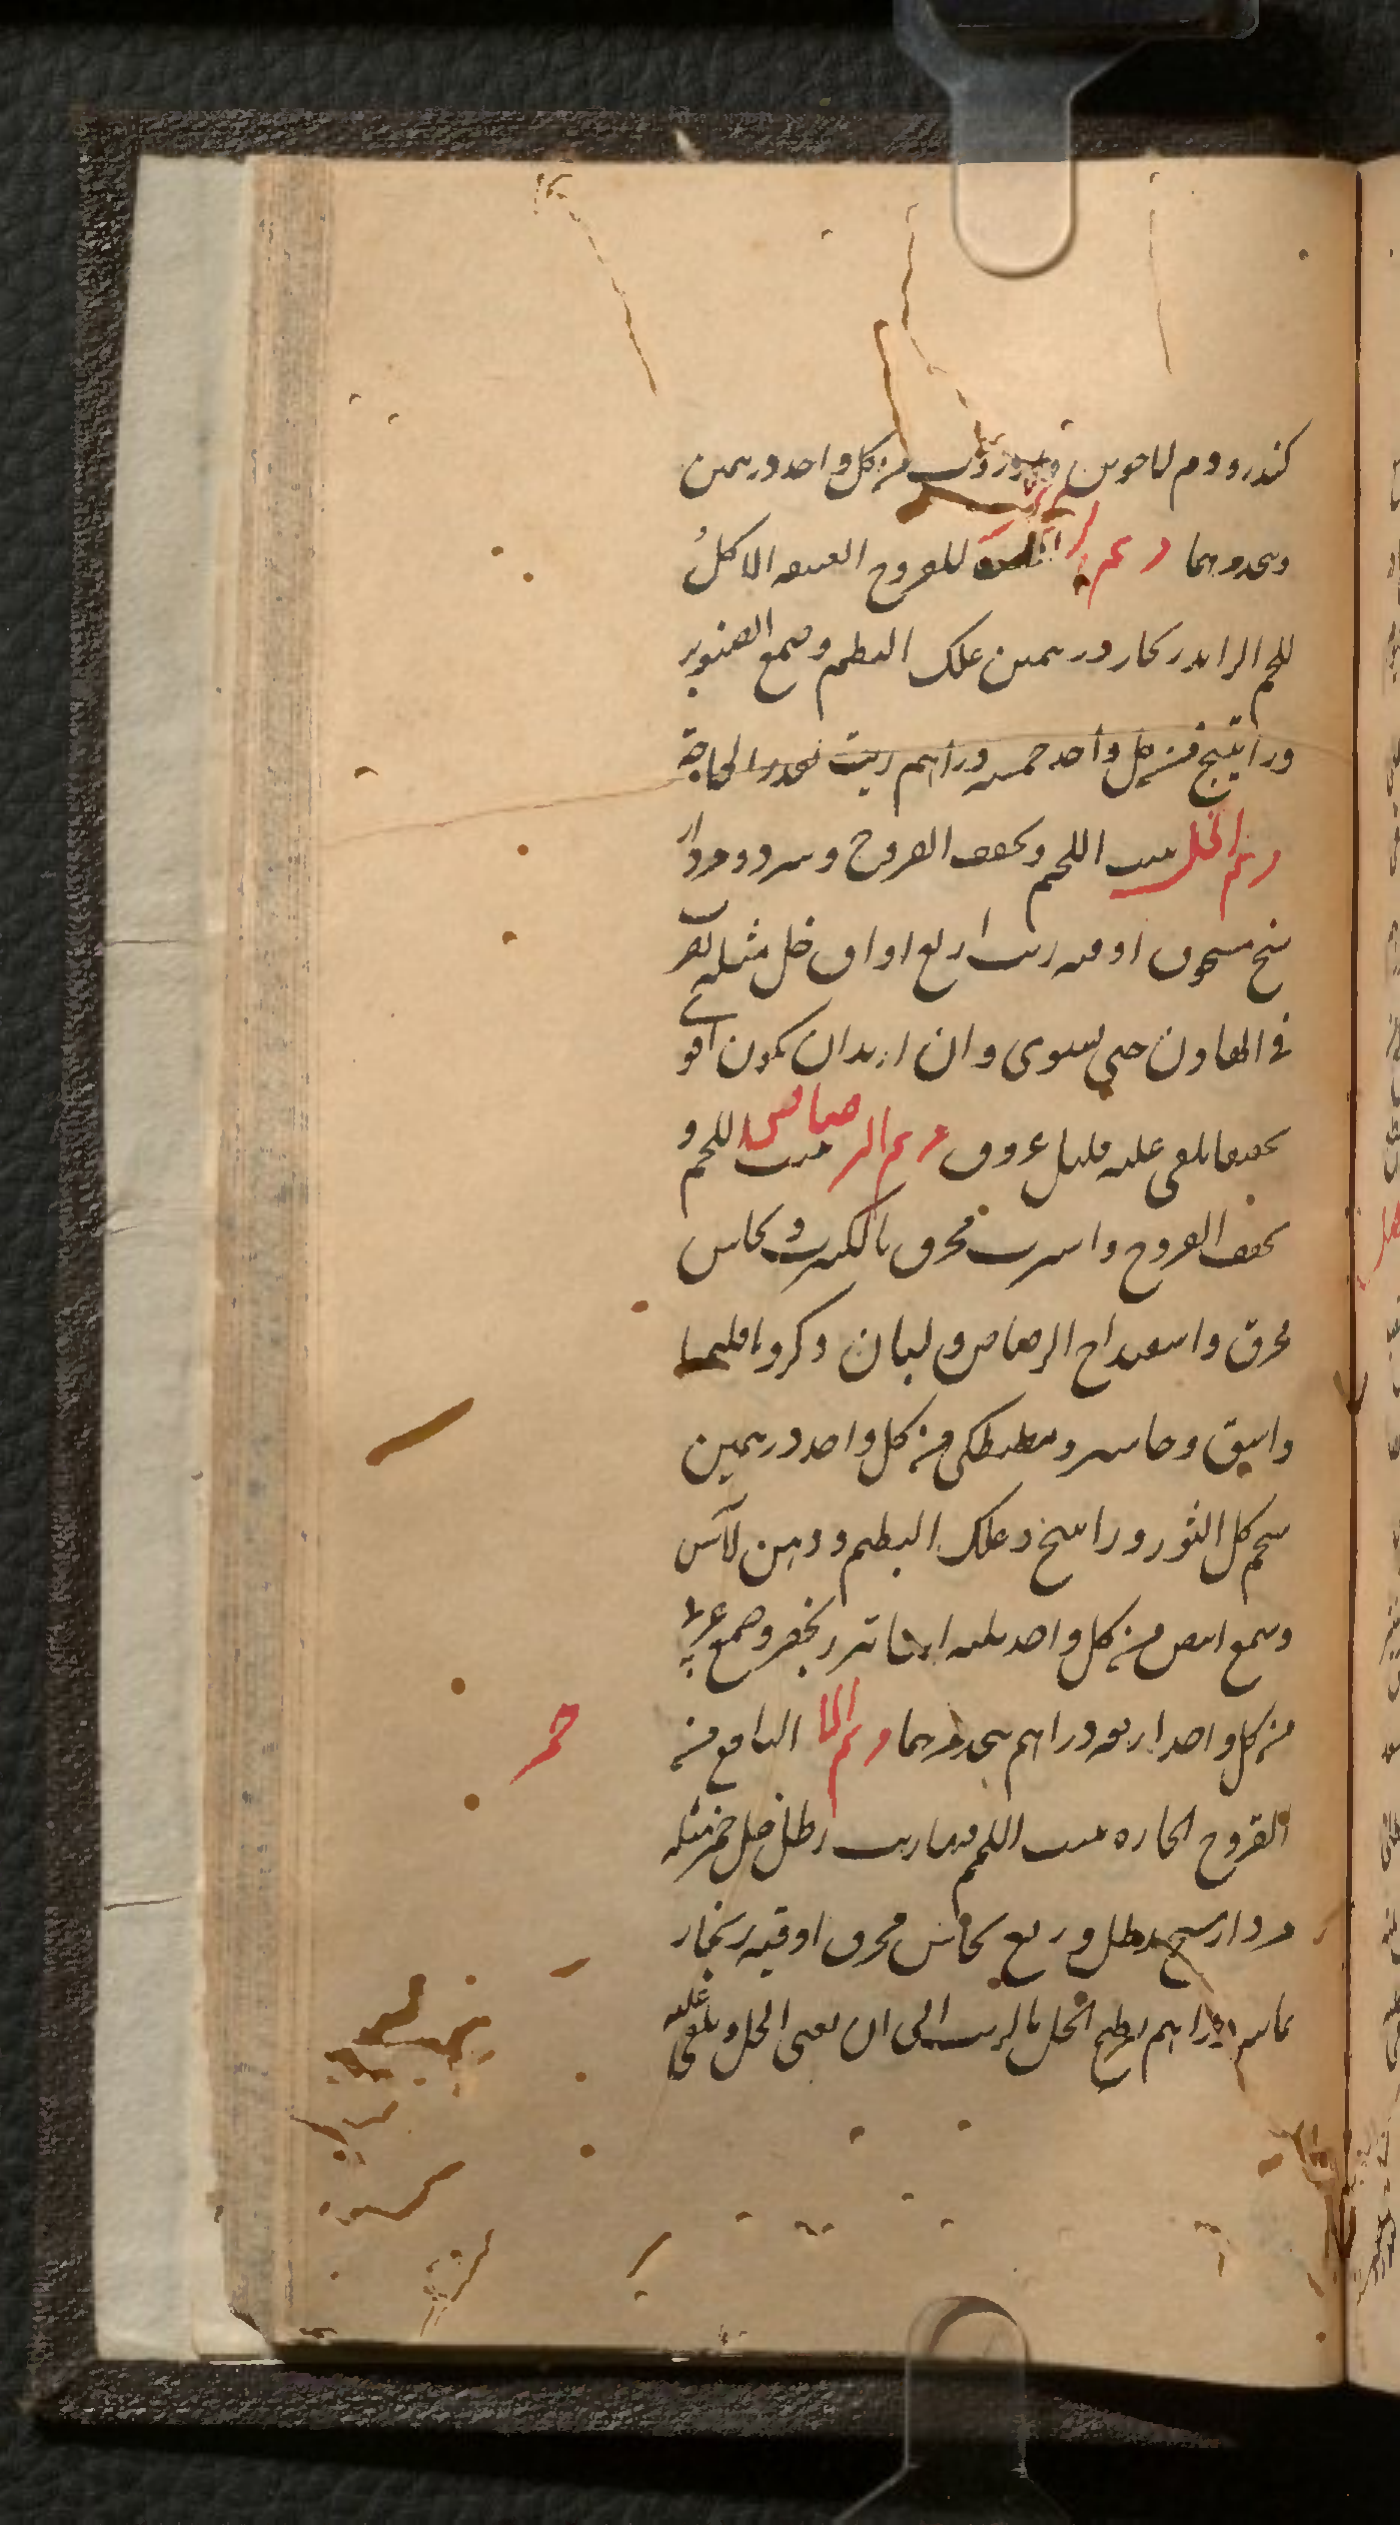 كندر و دم لاخوين وانزروت من كل واحد درهمين
وىحد رهما مرهم للقروح العتيقه الاكل
للحم الزايد زنجار درهمين علك البطم وصمغ الصنوبر
وراتينج من كل واحد خمسه دراهم زيت بقدر الحاجة
مرهم الخل ينبت اللحم ويجفف القروح ويبرد مردار
سنج مسحوق اوقيه زيت اربع اواق خل مثله يضرب
في الهاون حتى يستوى وان اريد ان يكون اقوى
تجفيفا يلقى عليه قليل عروق مرهم الرصاص ينبت اللحم و
يجفف القروح واسرب محرق بالكبريت و نحاس
محرق واسفيداج الرصاص ولبان ذكر واقليميا
واشق وجاوشير ومصطكى من كل واحد درهمين
شحم كلى الثور وراسخ وعلك البطم ودهن لآس
وشمع ابيض من كل واحد ثلثه زنجفر وصمغ عربي
من كل واحد اربعه دراهم مرهم النافع من
القروح الحاره ينبت اللحم فيها زيت رطل خل خمر مثله
مردارسنج رطل وربع نحاس محرق اوقيه زنجار
ثمانيه دراهم يطبخ الخل بالزيت الى ان يفنى الخل ويلقى عليه